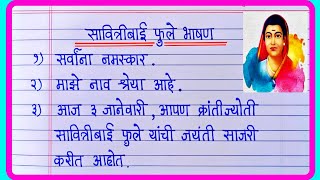 सावित्रीबाई फुले भाषण
१) सर्वांना नमस्कार.
२) माझे नाव श्रेया आहे.
३) आज ३ जानेवारी, आपण क्रांतीज्योती
सावित्रीबाई फुले यांची जयंती साजरी
करीत आहोत.